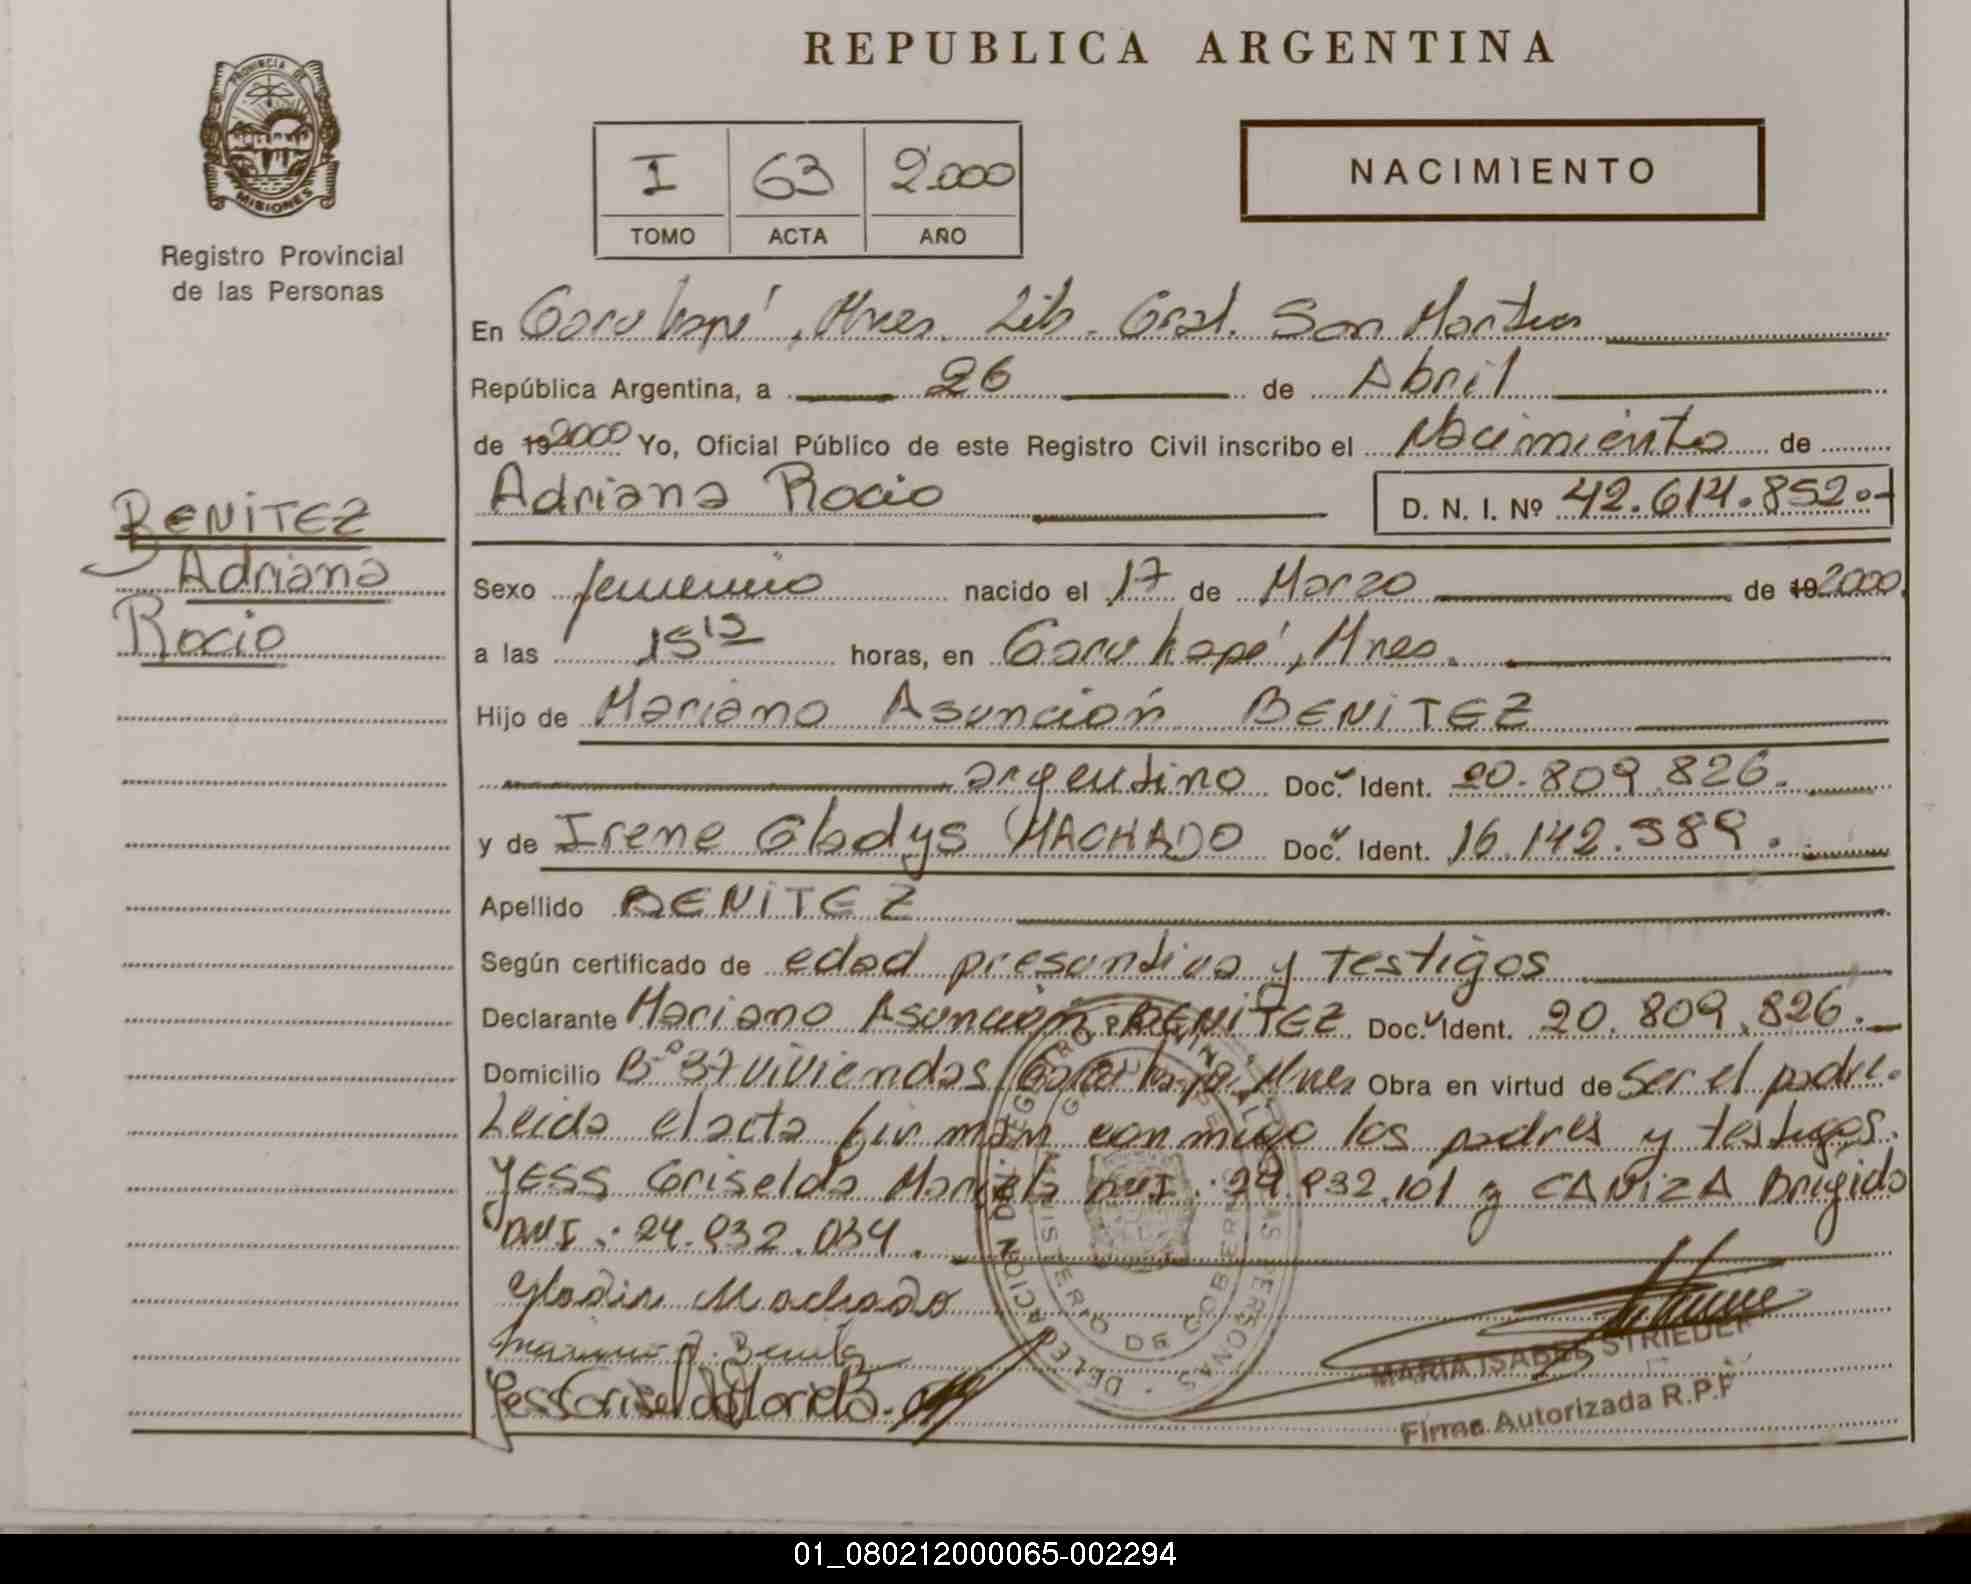 REPUBLICA ARGENTINA
PROVINCIA DE MISIONES
Registro Provincial
de las Personas
I 63 2.000
TOMO ACTA AÑO
NACIMIENTO
En Garuhapé, Mnes. Lib. Gral. San Martin
República Argentina, a 26 de Abril
de 19 2000 Yo, Oficial Público de este Registro Civil inscribo el Nacimiento de
Adriana Rocio D. N. I. Nº 42.614.852.-
BENITEZ
Adriana
Rocio
Sexo femenino nacido el 17 de Marzo de 19 2000
a las 15 15 horas, en Garuhapé, Mnes.
Hijo de Mariano Asunción BENITEZ
argentino Doc. Ident. 20.809.826.
y de Irene Gladys MACHADO Doc. Ident. 16.142.589.
Apellido BENITEZ
Según certificado de edad presuntiva y testigos
Declarante Mariano Asunción BENITEZ Doc. Ident. 20.809.826.
Domicilio Bº 37 viviendas Garuhapé, Mnes Obra en virtud de ser el padre.
Leida el acta firman conmigo los padres y testigos.
YESS Griselda Mariela DNI: 29.832.101 y CANIZA Brigido
DNI: 24.832.034.
Gladis Machado
Mariano A. Benitez
Yess Griselda Mariela
MARIA ISABEL STRIEDER
Firma Autorizada R.P.P
01_080212000065-002294